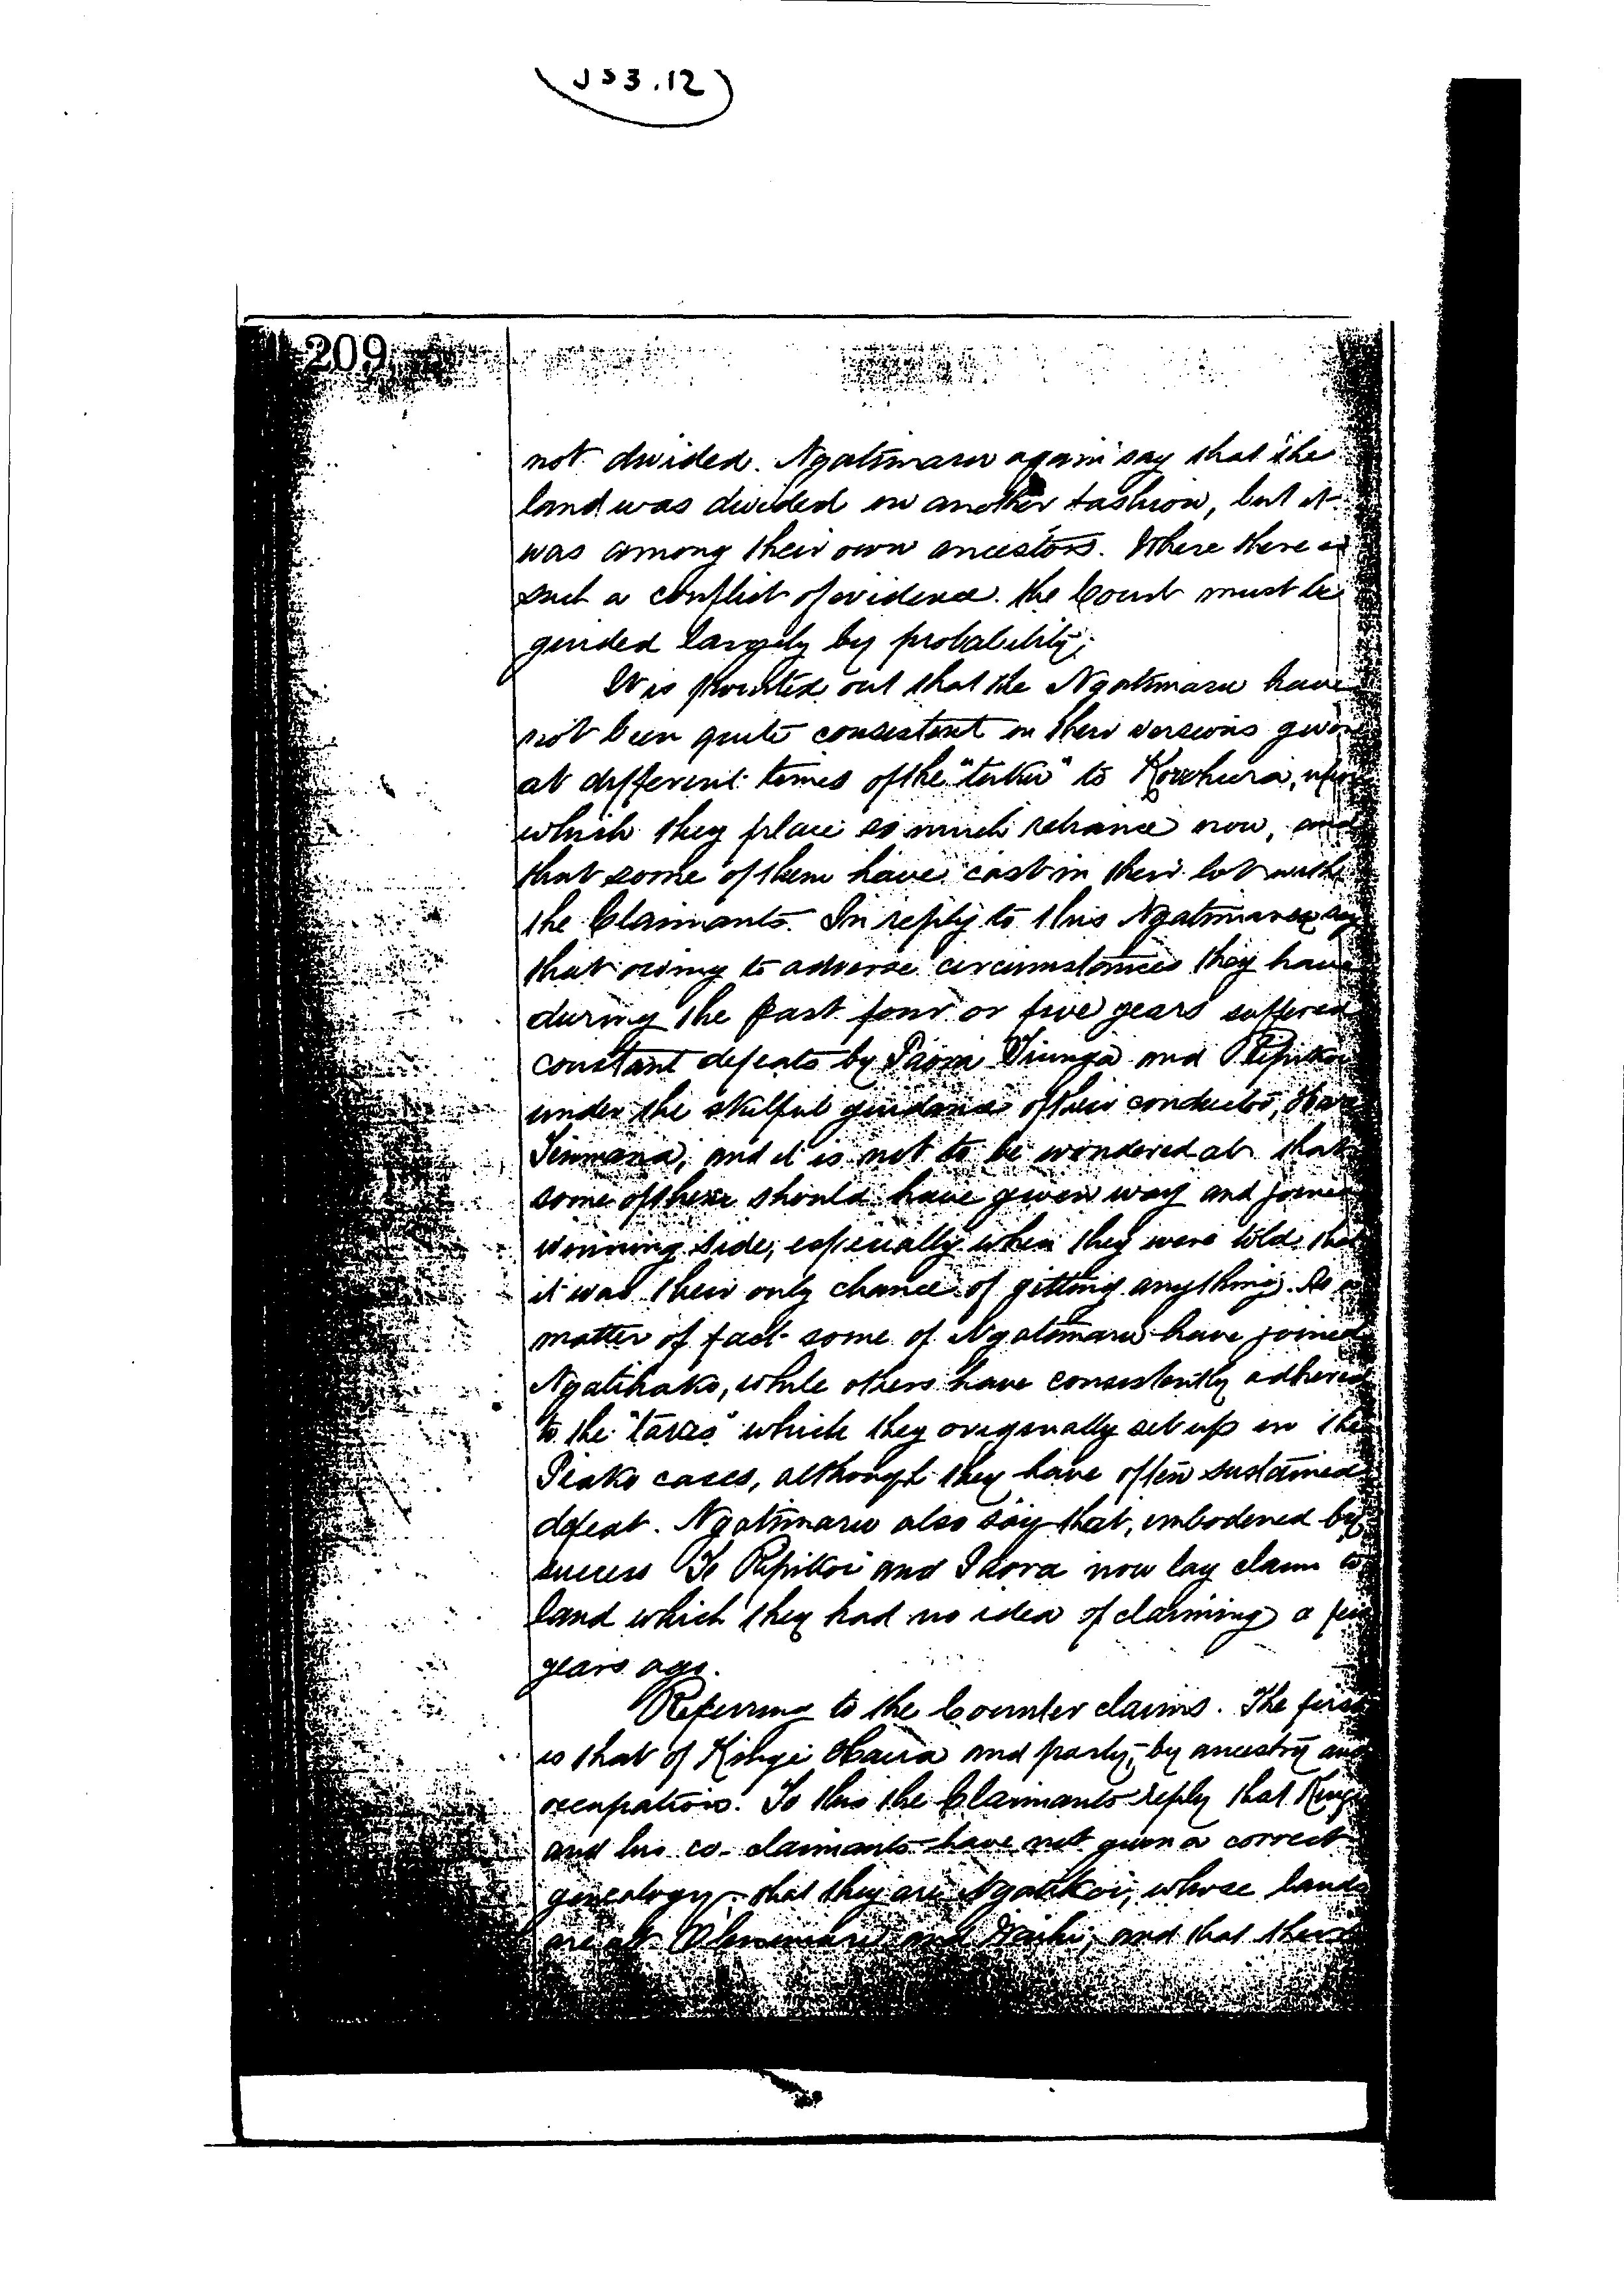 JS3.12
209
not divided. Ngatimaru again say that the
land was divided in another fashion, but it
was among their own ancestors. Where there is
such a conflict of evidence the Court must be
guided largely by probability.
It is pointed out that the Ngatimaru have
not been quite consistent in their versions given
at different times of the "tuku" to
which they place so much reliance now, and
that some of them have cast in their lot with
the Claimants. In reply to this Ngatimaru say
that owing to adverse circumstances they have
during the past four or five years suffered
constant defeats by Paora Tiunga and Repikoi
under the skilful guidance of their conductor,
and it is not to be wondered at that
some of them should have given way and joined
winning side, especially when they were told that
it was their only chance of getting anything. As a
matter of fact some of Ngatimaru have joined
Ngatihako, while others have consistently adhered
to the "takes" which they originally set up in the
Piako cases, although they have often sustained
defeat. Ngatimaru also say that, embodened by
success Te Repikoi and Paora now lay claim to
land which they had no idea of claiming a few
years ago.
Referring to the Counter claims. The first
is that of Kingi and party, by ancestry and
occupation. To this the Claimants reply that Kingi
and his co-claimants have not given a correct
genealogy, that they are Ngatikoi, whose lands
are at Ohinemuri and Waihi, and that there